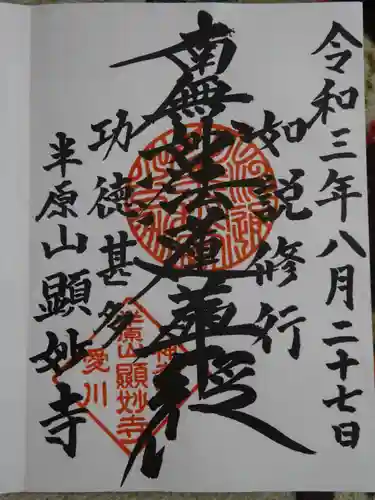 令和三年八月二十七日
如説修行
南無妙法蓮華経
功徳甚多
半原山顕妙寺
半原山
顕妙寺
愛川